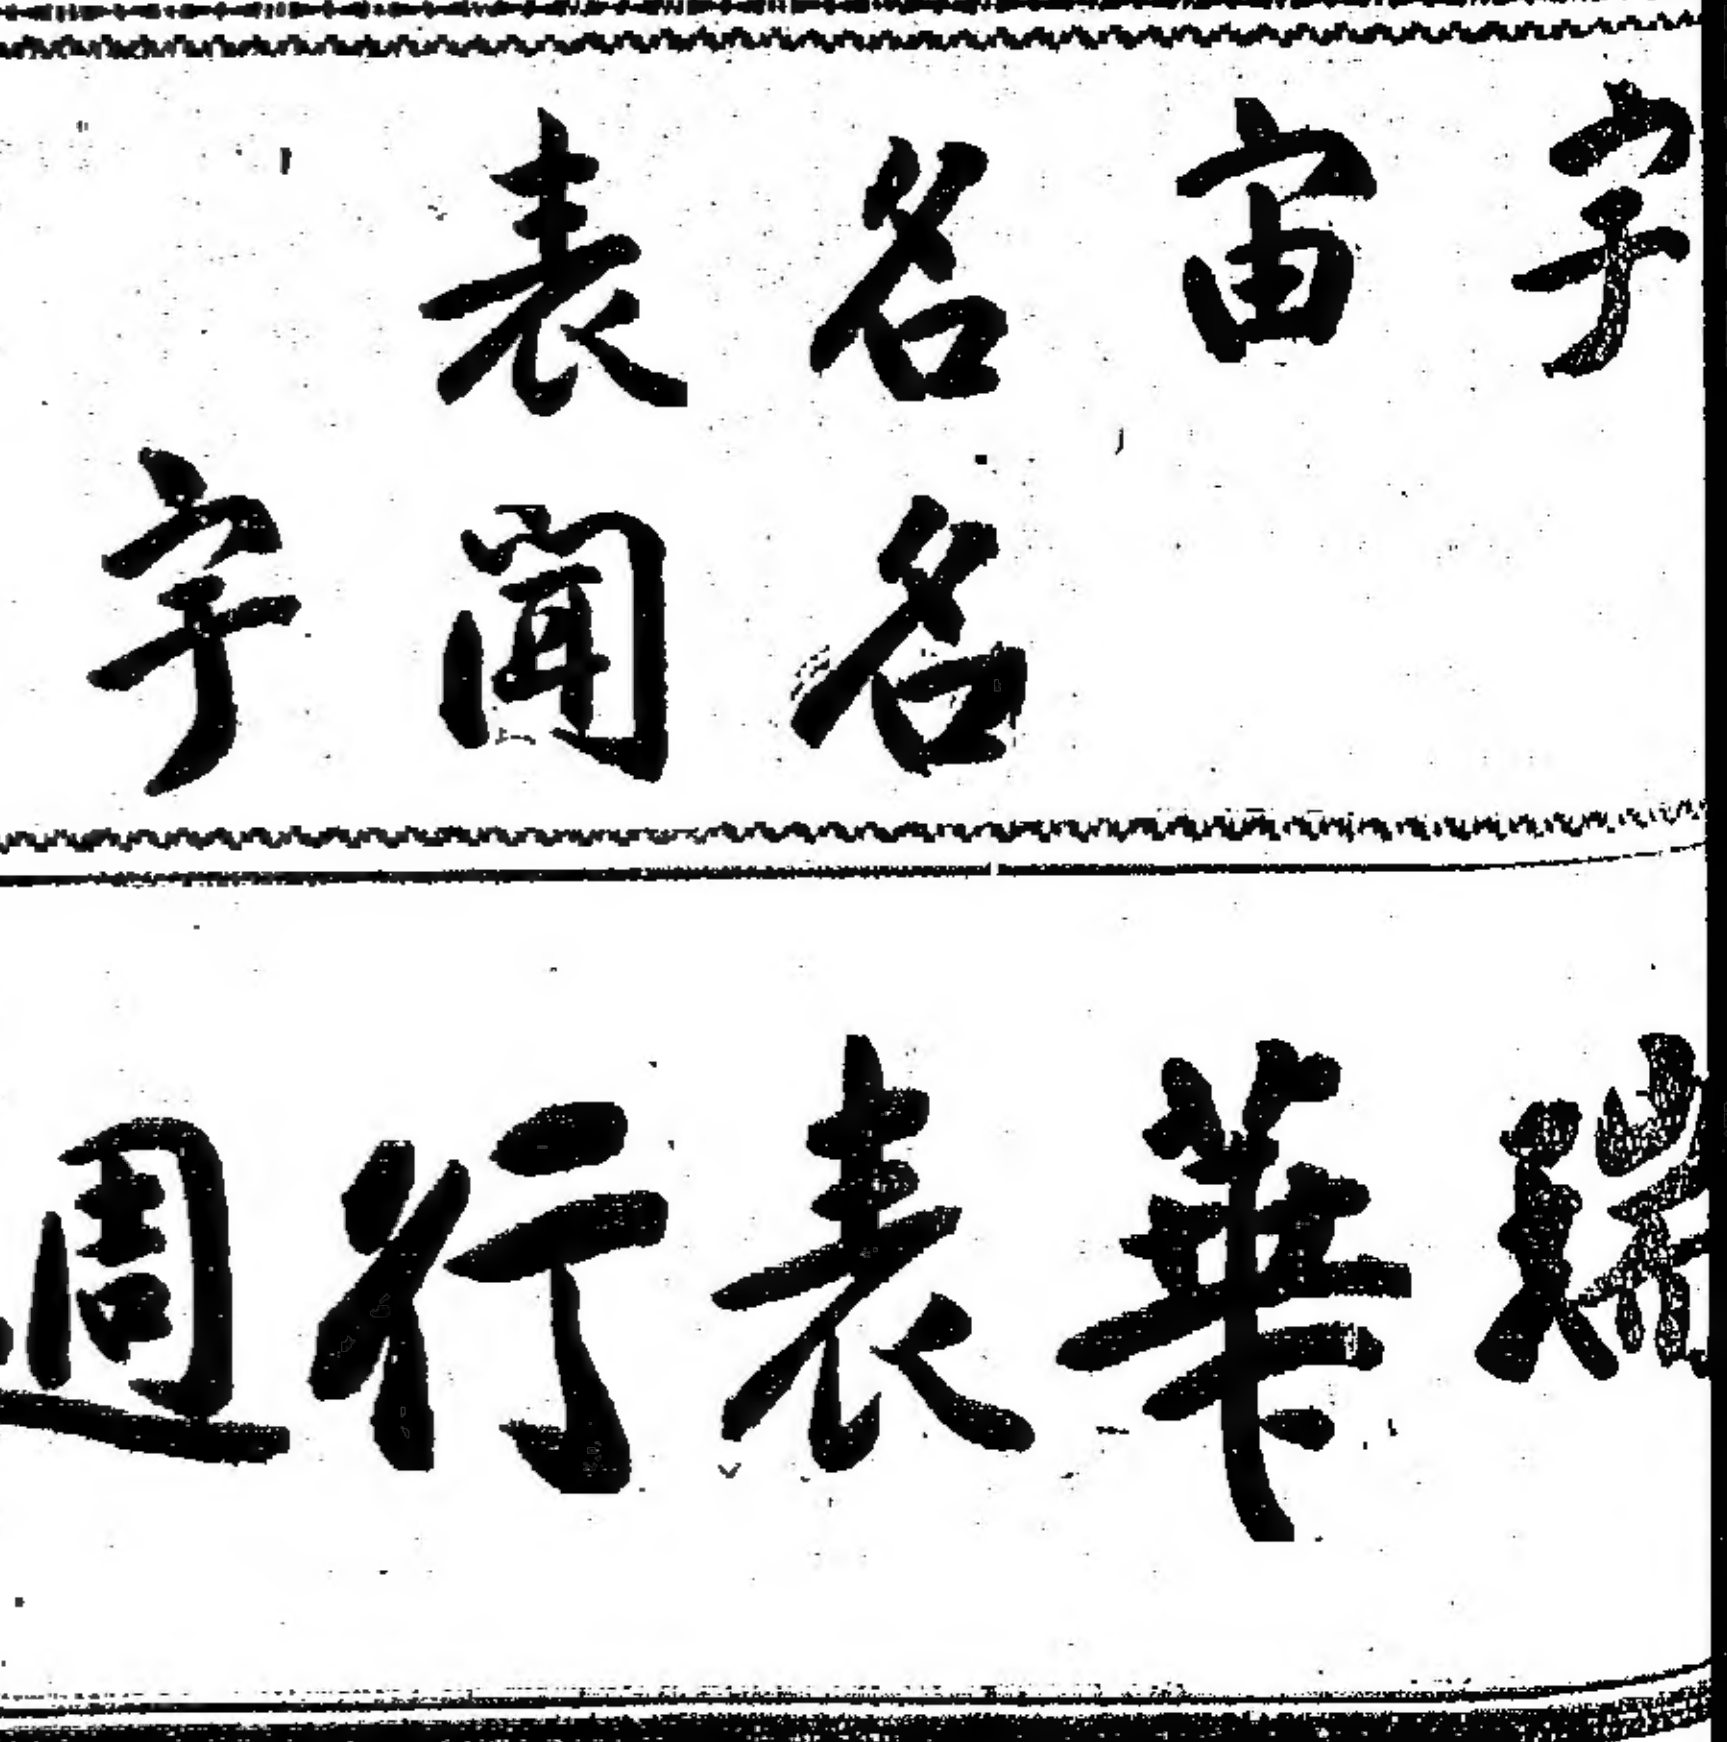 宇宙名表
名聞宇
瑞華表行週